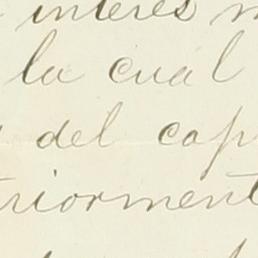 interés
la cual
del cap
riorment